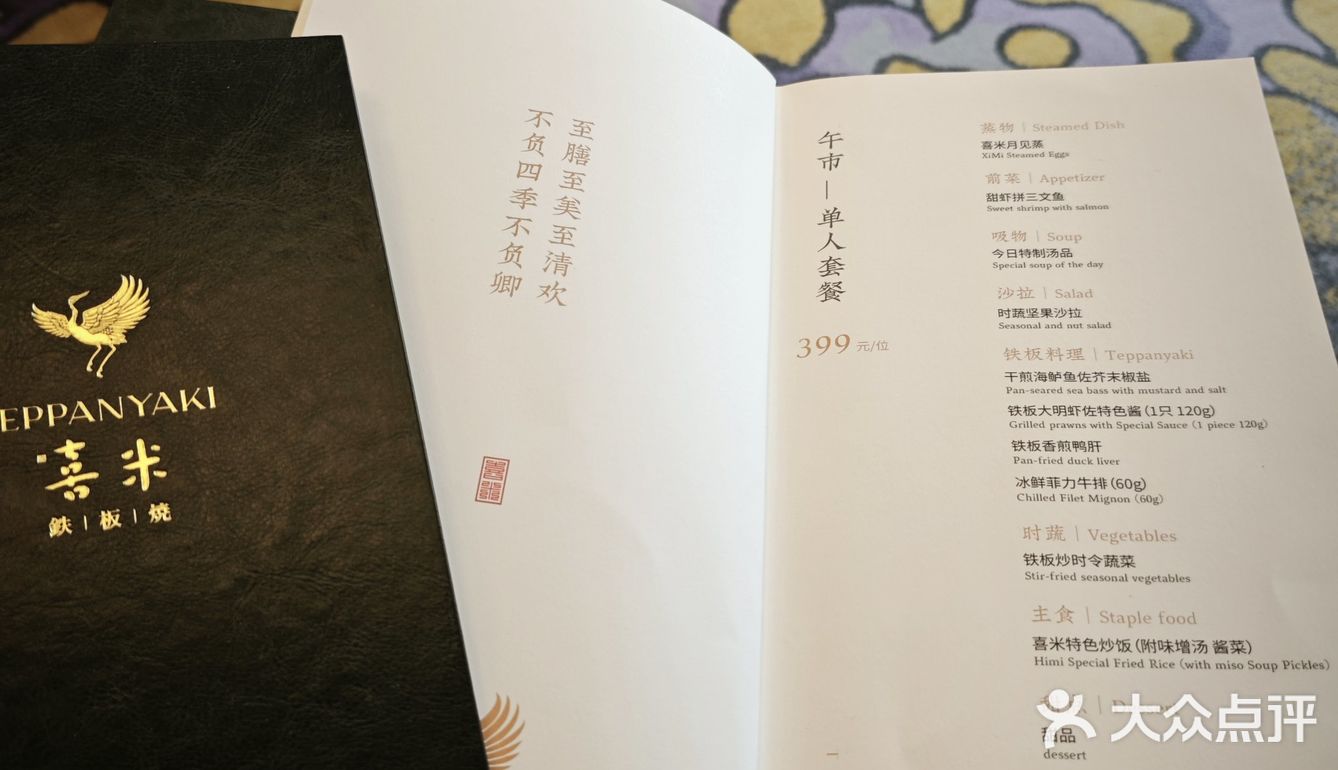 EPPANYAKI
喜米
鉄|板|焼
至膳至美至清欢
不负四季不负卿
午市—单人套餐
399 元/位
蒸物 | Steamed Dish
喜米月见蒸
XiMi Steamed Eggs
前菜 | Appetizer
甜虾拼三文鱼
Sweet shrimp with salmon
吸物 | Soup
今日特制汤品
Special soup of the day
沙拉 | Salad
时蔬坚果沙拉
Seasonal and nut salad
铁板料理 | Teppanyaki
干煎海鲈鱼佐芥末椒盐
Pan-seared sea bass with mustard and salt
铁板大明虾佐特色酱(1只 120g)
Grilled prawns with Special Sauce (1 piece 120g)
铁板香煎鸭肝
Pan-fried duck liver
冰鲜菲力牛排(60g)
Chilled Filet Mignon (60g)
时蔬 | Vegetables
铁板炒时令蔬菜
Stir-fried seasonal vegetables
主食 | Staple food
喜米特色炒饭(附味增汤 酱菜)
Himi Special Fried Rice (with miso Soup Pickles)
甜品
dessert
大众点评